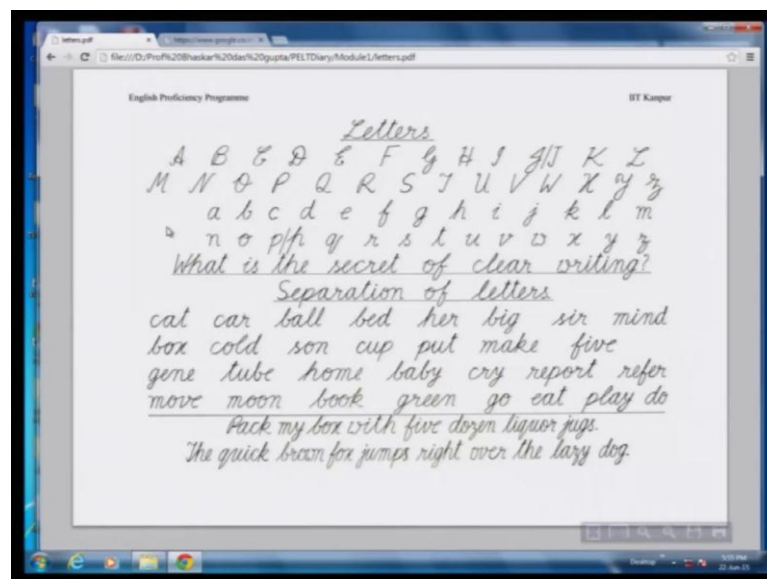 letters.pdf
file:///D:/Prof%20Bhaskar%20das%20gupta/PELTDiary/Module1/letters.pdf
English Proficiency Programme IIT Kanpur
Letters
A B C D E F G H I J/J K L
M N O P Q R S T U V W X Y Z
a b c d e f g h i j k l m
n o p/p q r s t u v w x y z
What is the secret of clear writing?
Separation of letters
cat car ball bed her big sir mind
box cold son cup put make five
gene tube home baby cry report refer
move moon book green go eat play do
Pack my box with five dozen liquor jugs.
The quick brown fox jumps right over the lazy dog.
Desktop 5:55 PM
22-Jun-15